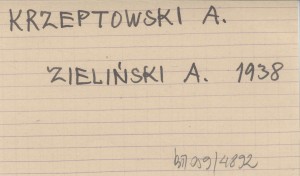 KRZEPTOWSKI A.
ZIELIŃSKI A. 1938
/4892